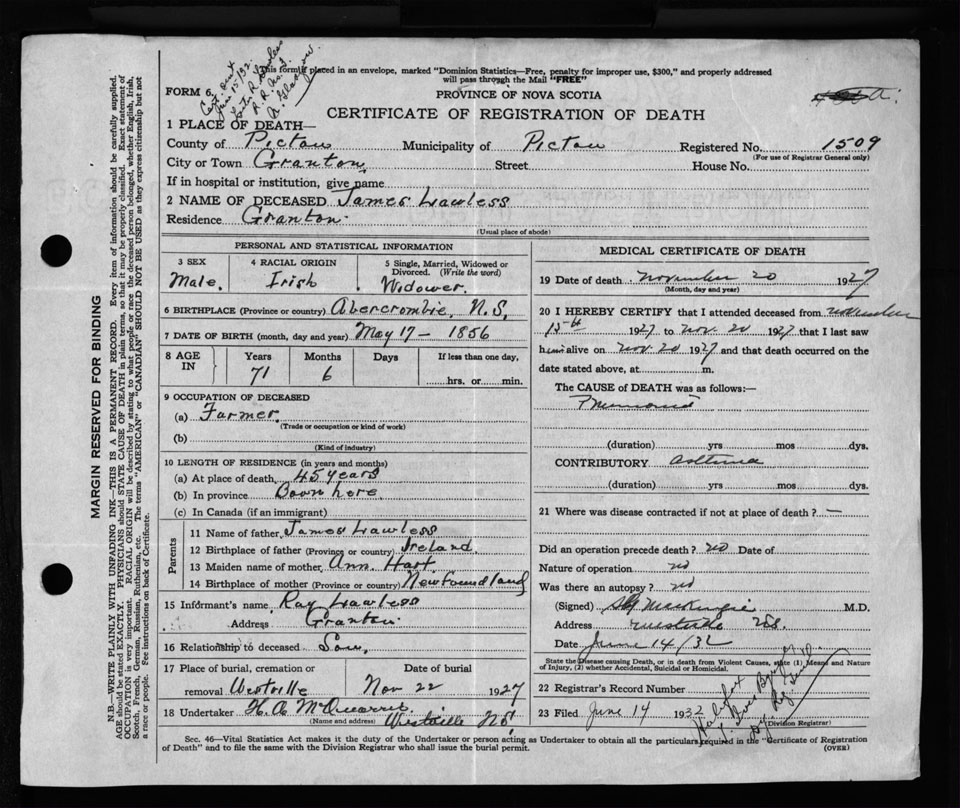 This form if placed in an envelope, marked "Dominion Statistics—Free, penalty for improper use, $300," and properly addressed
will pass through the Mail "FREE"
FORM 6.
PROVINCE OF NOVA SCOTIA
CERTIFICATE OF REGISTRATION OF DEATH
1 PLACE OF DEATH—
County of Pictou Municipality of Pictou Registered No. 1509
(For use of Registrar General only)
City or Town Granton Street House No.
If in hospital or institution, give name
2 NAME OF DECEASED James Lawless
Residence Granton
(Usual place of abode)
PERSONAL AND STATISTICAL INFORMATION
3 SEX 4 RACIAL ORIGIN 5 Single, Married, Widowed or
Divorced. (Write the word)
Male. Irish Widower.
6 BIRTHPLACE (Province or country) Abercrombie, N.S,
7 DATE OF BIRTH (month, day and year) May 17 - 1856
8 AGE IN Years Months Days If less than one day,
71 6 hrs. or min.
9 OCCUPATION OF DECEASED
(a) Farmer.
(Trade or occupation or kind of work)
(b)
(Kind of industry)
10 LENGTH OF RESIDENCE (in years and months)
(a) At place of death, 45 years
(b) In province Born here.
(c) In Canada (if an immigrant)
Parents
11 Name of father, James Lawless
12 Birthplace of father (Province or country) Ireland.
13 Maiden name of mother Ann. Hart.
14 Birthplace of mother (Province or country) Newfoundland
15 Informant's name Ray Lawless
Address Granton
16 Relationship to deceased Son.
17 Place of burial, cremation or Date of burial
removal Westville Nov 22 1927
18 Undertaker H. A. McQuarrie
(Name and address) Westville N.S.
MEDICAL CERTIFICATE OF DEATH
19 Date of death November 20 1927
(Month, day and year)
20 I HEREBY CERTIFY that I attended deceased from November
15th 1927 to Nov. 20 1927 that I last saw
him alive on Nov. 20 1927 and that death occurred on the
date stated above, at m.
The CAUSE of DEATH was as follows:—
Pneumonia
(duration) yrs mos dys.
CONTRIBUTORY asthma
(duration) yrs mos dys.
21 Where was disease contracted if not at place of death? —
Did an operation precede death? no Date of
Nature of operation no
Was there an autopsy? no
(Signed) MacKenzie M.D.
Address Westville N.S.
Date June 14/32
State the Disease causing Death, or in death from Violent Causes, state (1) Means and Nature
of Injury, (2) whether Accidental, Suicidal or Homicidal.
22 Registrar's Record Number
23 Filed June 14 1932
(Division Registrar)
Halifax
Sec. 46—Vital Statistics Act makes it the duty of the Undertaker or person acting as Undertaker to obtain all the particulars required in the "Certificate of Registration
of Death" and to file the same with the Division Registrar who shall issue the burial permit.
(OVER)
MARGIN RESERVED FOR BINDING
N.B—WRITE PLAINLY WITH UNFADING INK—THIS IS A PERMANENT RECORD. Every item of information should be carefully supplied.
AGE should be stated EXACTLY. PHYSICIANS should STATE CAUSE OF DEATH in plain terms, so that it may be properly classified. Exact statement of
OCCUPATION is very important. RACIAL ORIGIN will be described by stating to what people or race the deceased person belonged, whether English, Irish,
Scotch, French, German, Russian, Ruthenian, etc. The terms "AMERICAN" or "CANADIAN" SHOULD NOT BE USED as they express citizenship but not
a race or people. Fee instructions on back of Certificate.